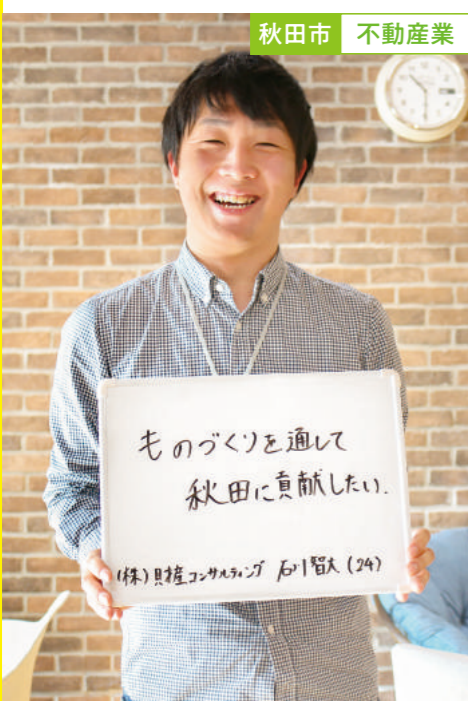 秋田市 不動産業
ものづくりを通して
秋田に貢献したい.
(株)財産コンサルティング 石川智大(24)